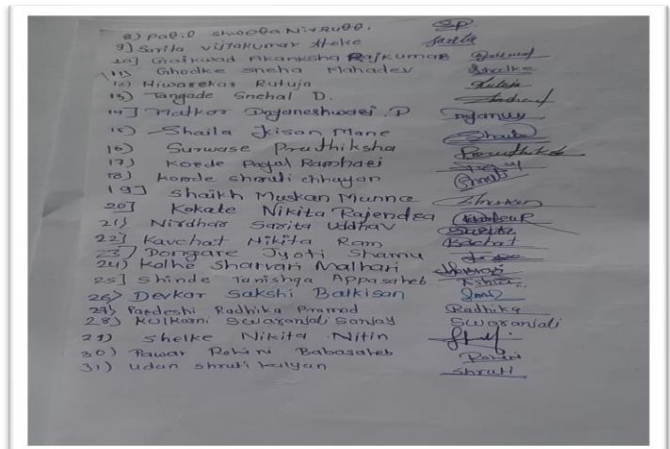 8) Patil Shobha Nivrutti. SP
9] Sarita Vijaykumar Heke Sarita
10] Gaikwad Akanksha Rajkumar
11) Ghodke Sneha Mahadev
12) Hiwarekar Rutuja Rutuja
13) Tangade Snehal D.
14] Matkar Dnyaneshwari .D
15) Shaila Kisan Mane Shaila
16) Surwase Pruthiksha Pruthiksha
17) Korde Payal Ramhari
18) Korde Shruti Chhayan Shruti
19] Shaikh Muskan Munna
20] Kokate Nikita Rajendra
21) Nirdhar Sarita Uddhav Sarita
22] Kavchat Nikita Ram Kachat
23) Dongare Jyoti Shamu
24) Kolhe Sharvari Malhari
25] Shinde Tanishqa Appasaheb
26) Devkar Sakshi Balkisan
27) Pardeshi Radhika Pramod Radhika
28) Kulkarni Swaranjali Sanjay Swaranjali
29) Shelke Nikita Nitin
30) Pawar Rohini Babasaheb Rohini
31) Udan Shruti Kalyan Shruti